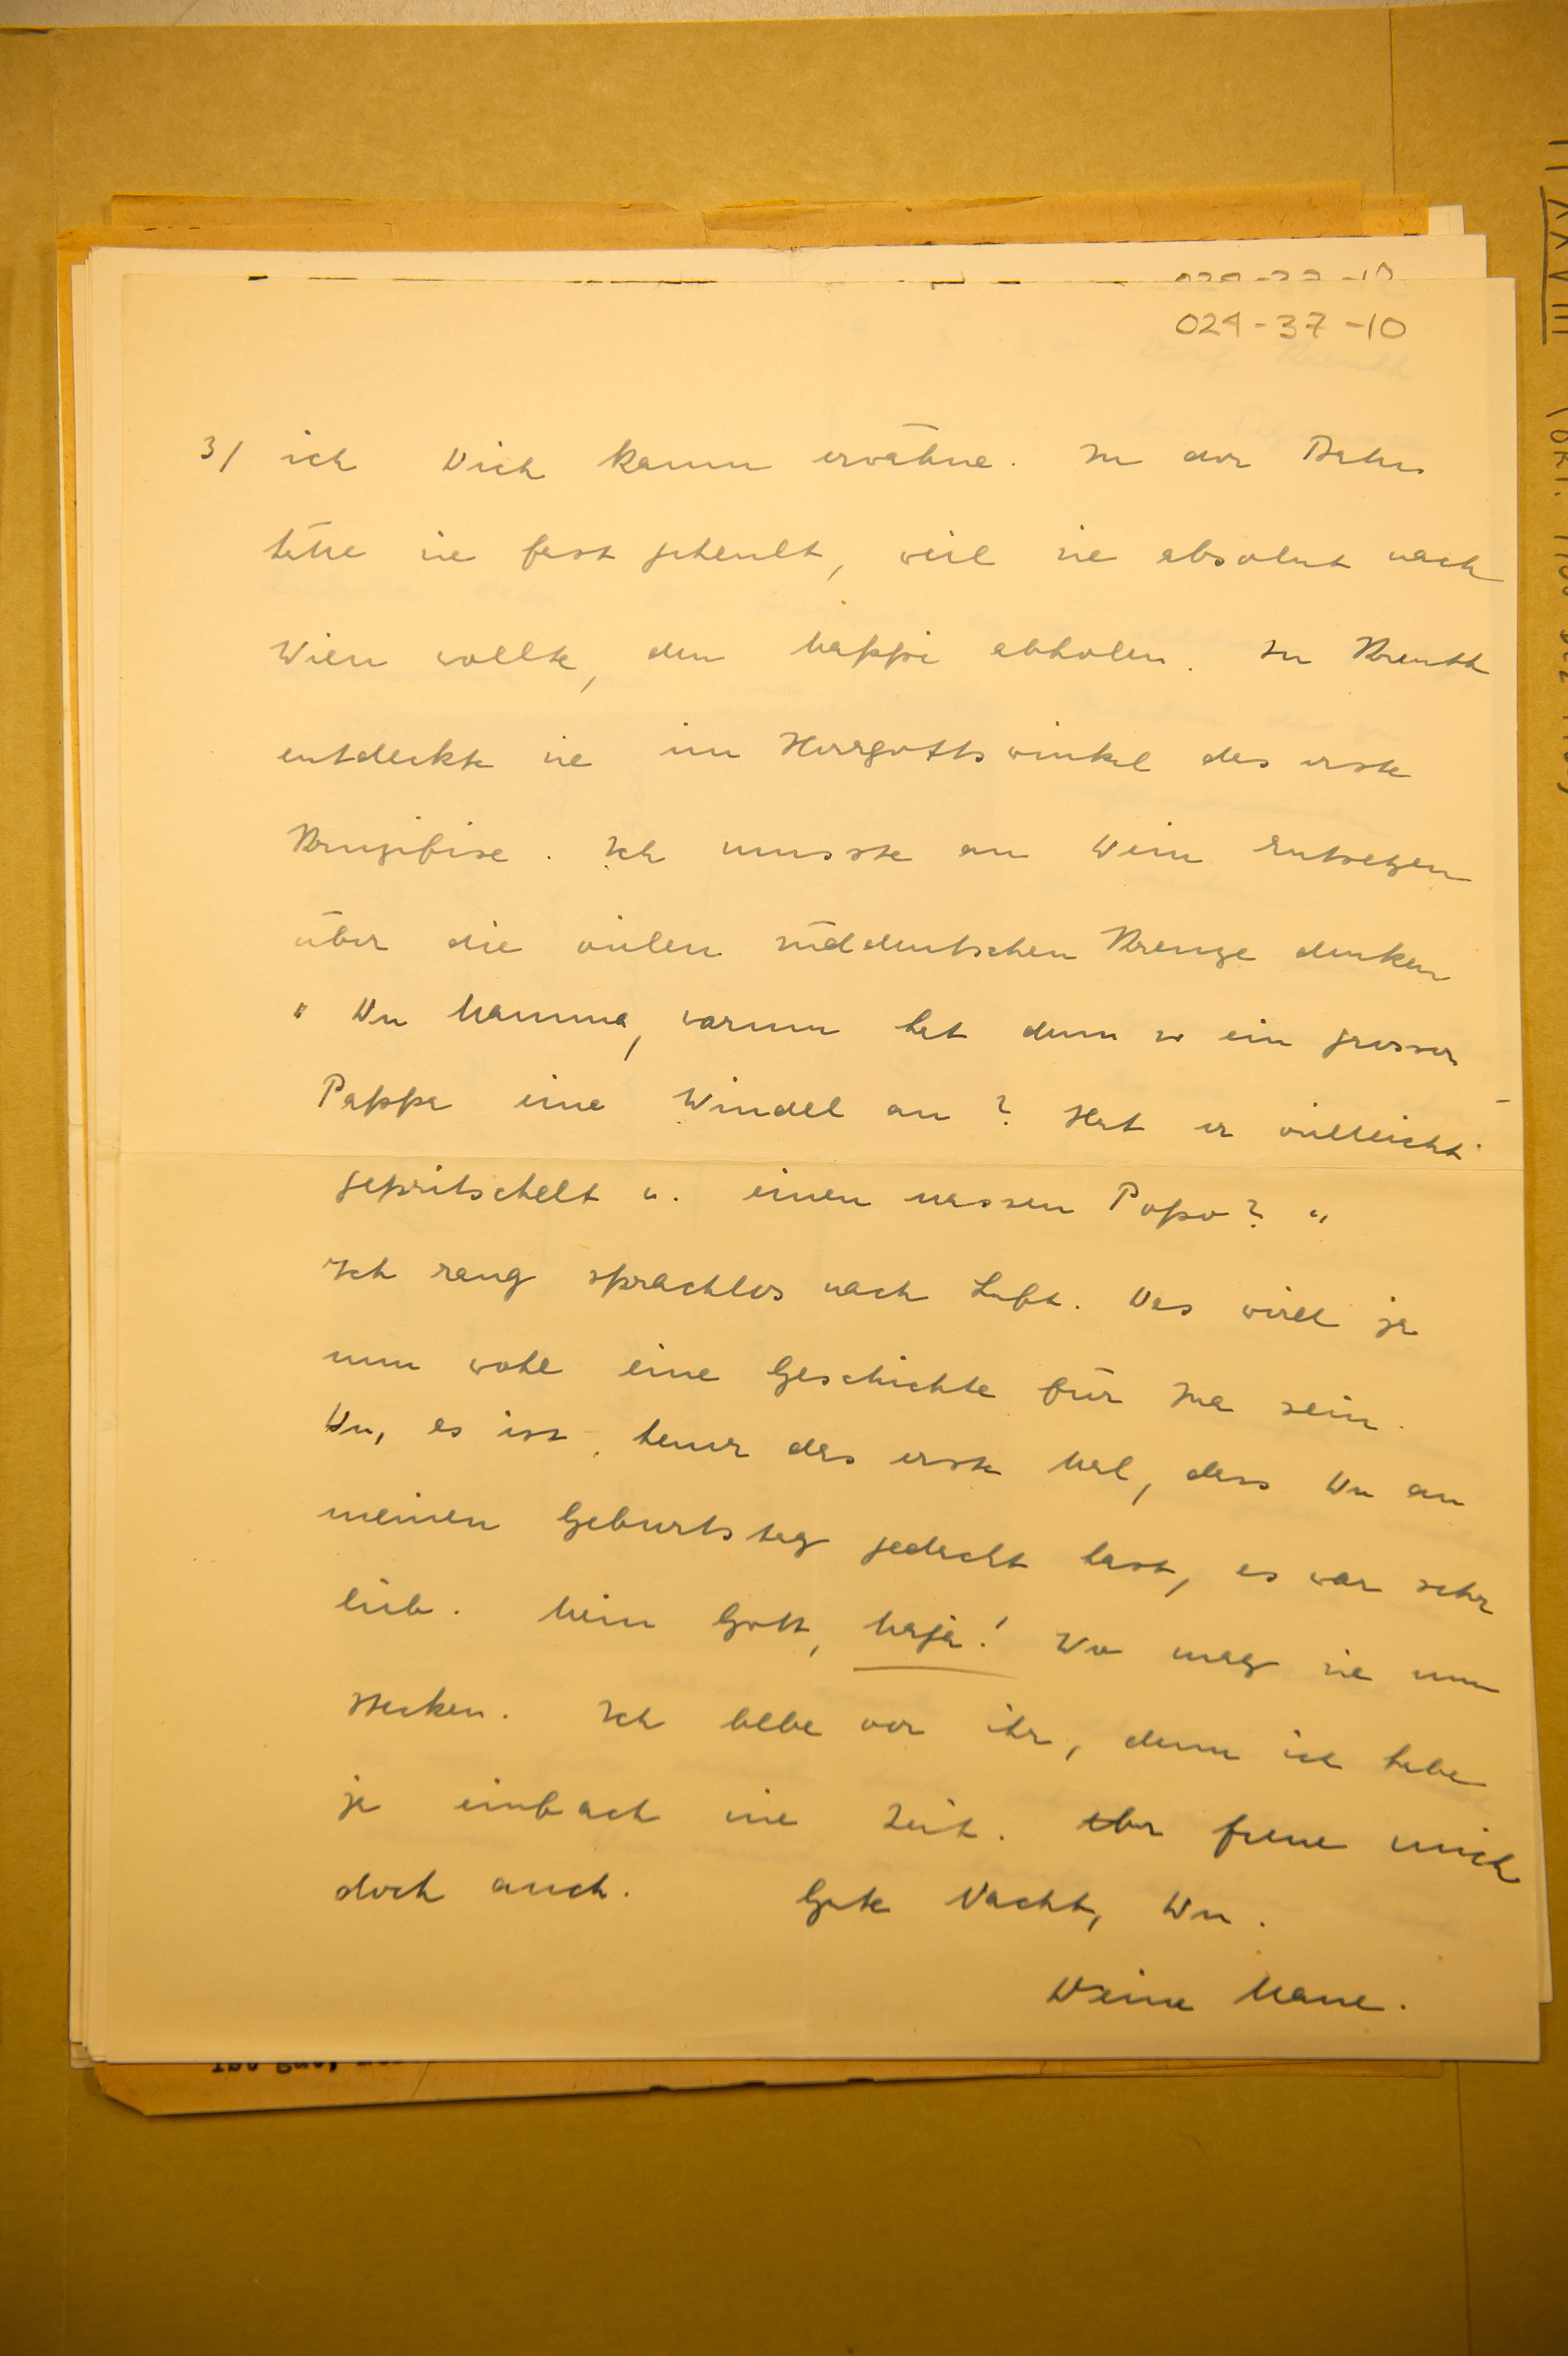 024-37-10
3/ ich Dich kaum erwähne. In der Bahn
hätte sie fast geheult, weil sie absolut nach
Wien wollte, den Mappi abholen. In Kreuth
entdeckte sie im Herrgottswinkel das erste
Kruzifixe. Ich musste an Dein Entsetzen
über die vielen süddeutschen Kreuze denken
" Du Mamma, warum hat denn so ein grosser
Pappa eine Windel an? Hat er vielleicht
gepritschelt u. einen nassen Popo? "
Ich rang sprachlos nach Luft. Das wird ja
nun wohl eine Geschichte für Ina sein.
Du, es ist heuer das erste Mal, dass Du an
meinen Geburtstag gedacht hast, es war sehr
lieb. Mein Gott, Maja! Wo mag sie nun
stecken. Ich bebe vor ihr, denn ich habe
ja einfach nie Zeit. Aber freue mich
doch auch. Gute Nacht, Du.
Deine Maue.